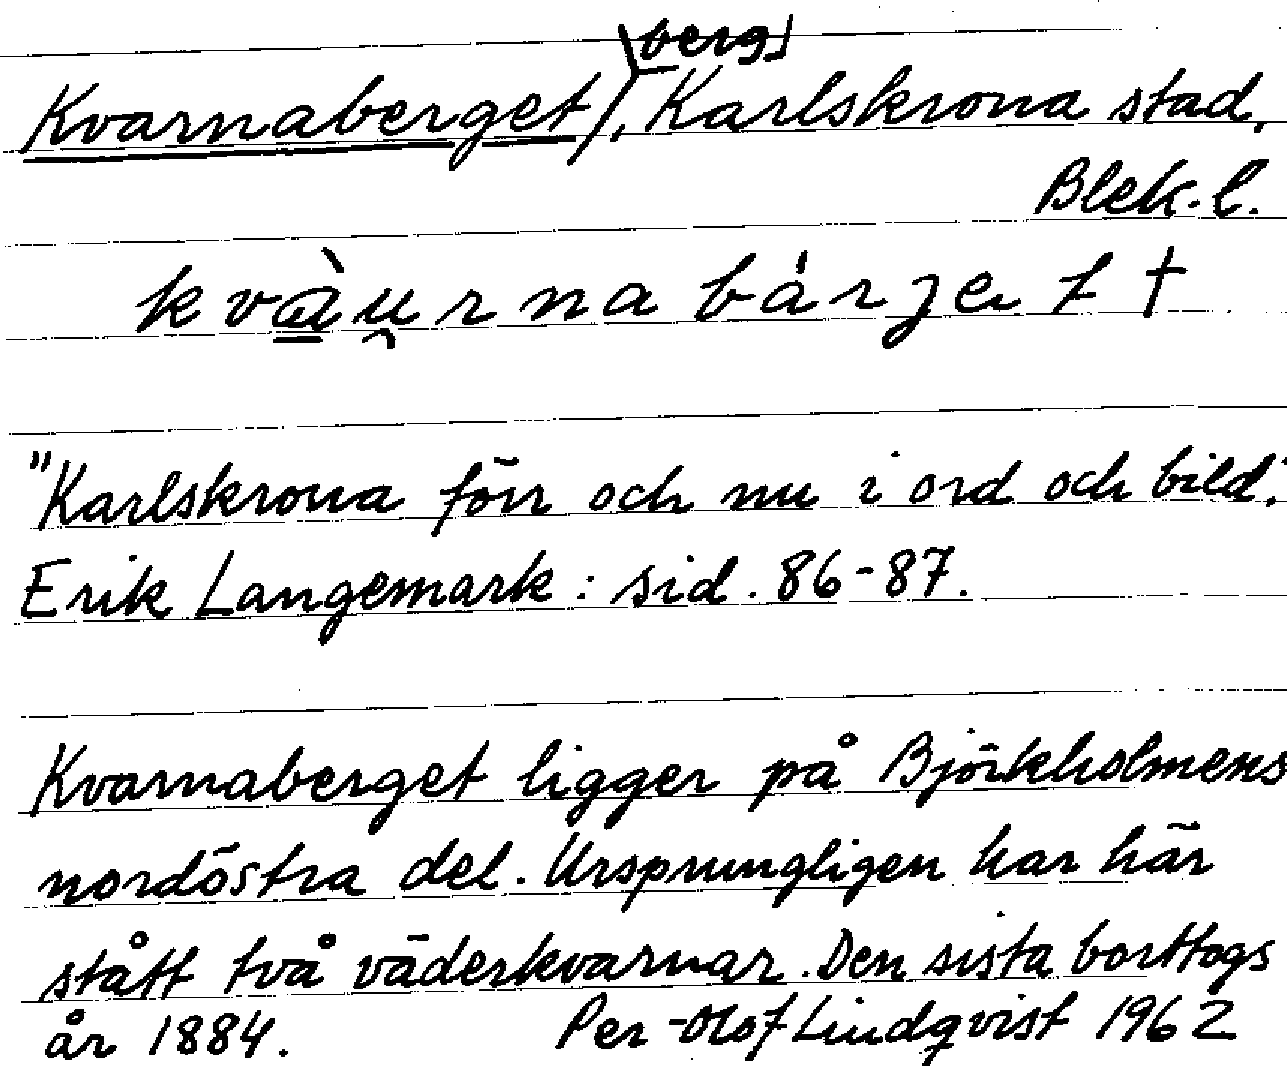 berg
Kvarnaberget), Karlskrona stad,
Blek. l.
kvàu̯rnabárjet †
"Karlskrona förr och nu i ord och bild."
Erik Langemark: sid. 86-87.
Kvarnaberget ligger på Björkholmens
nordöstra del. Ursprungligen har här
stått två väderkvarnar. Den sista borttogs
år 1884. Per-Olof Lindqvist 1962